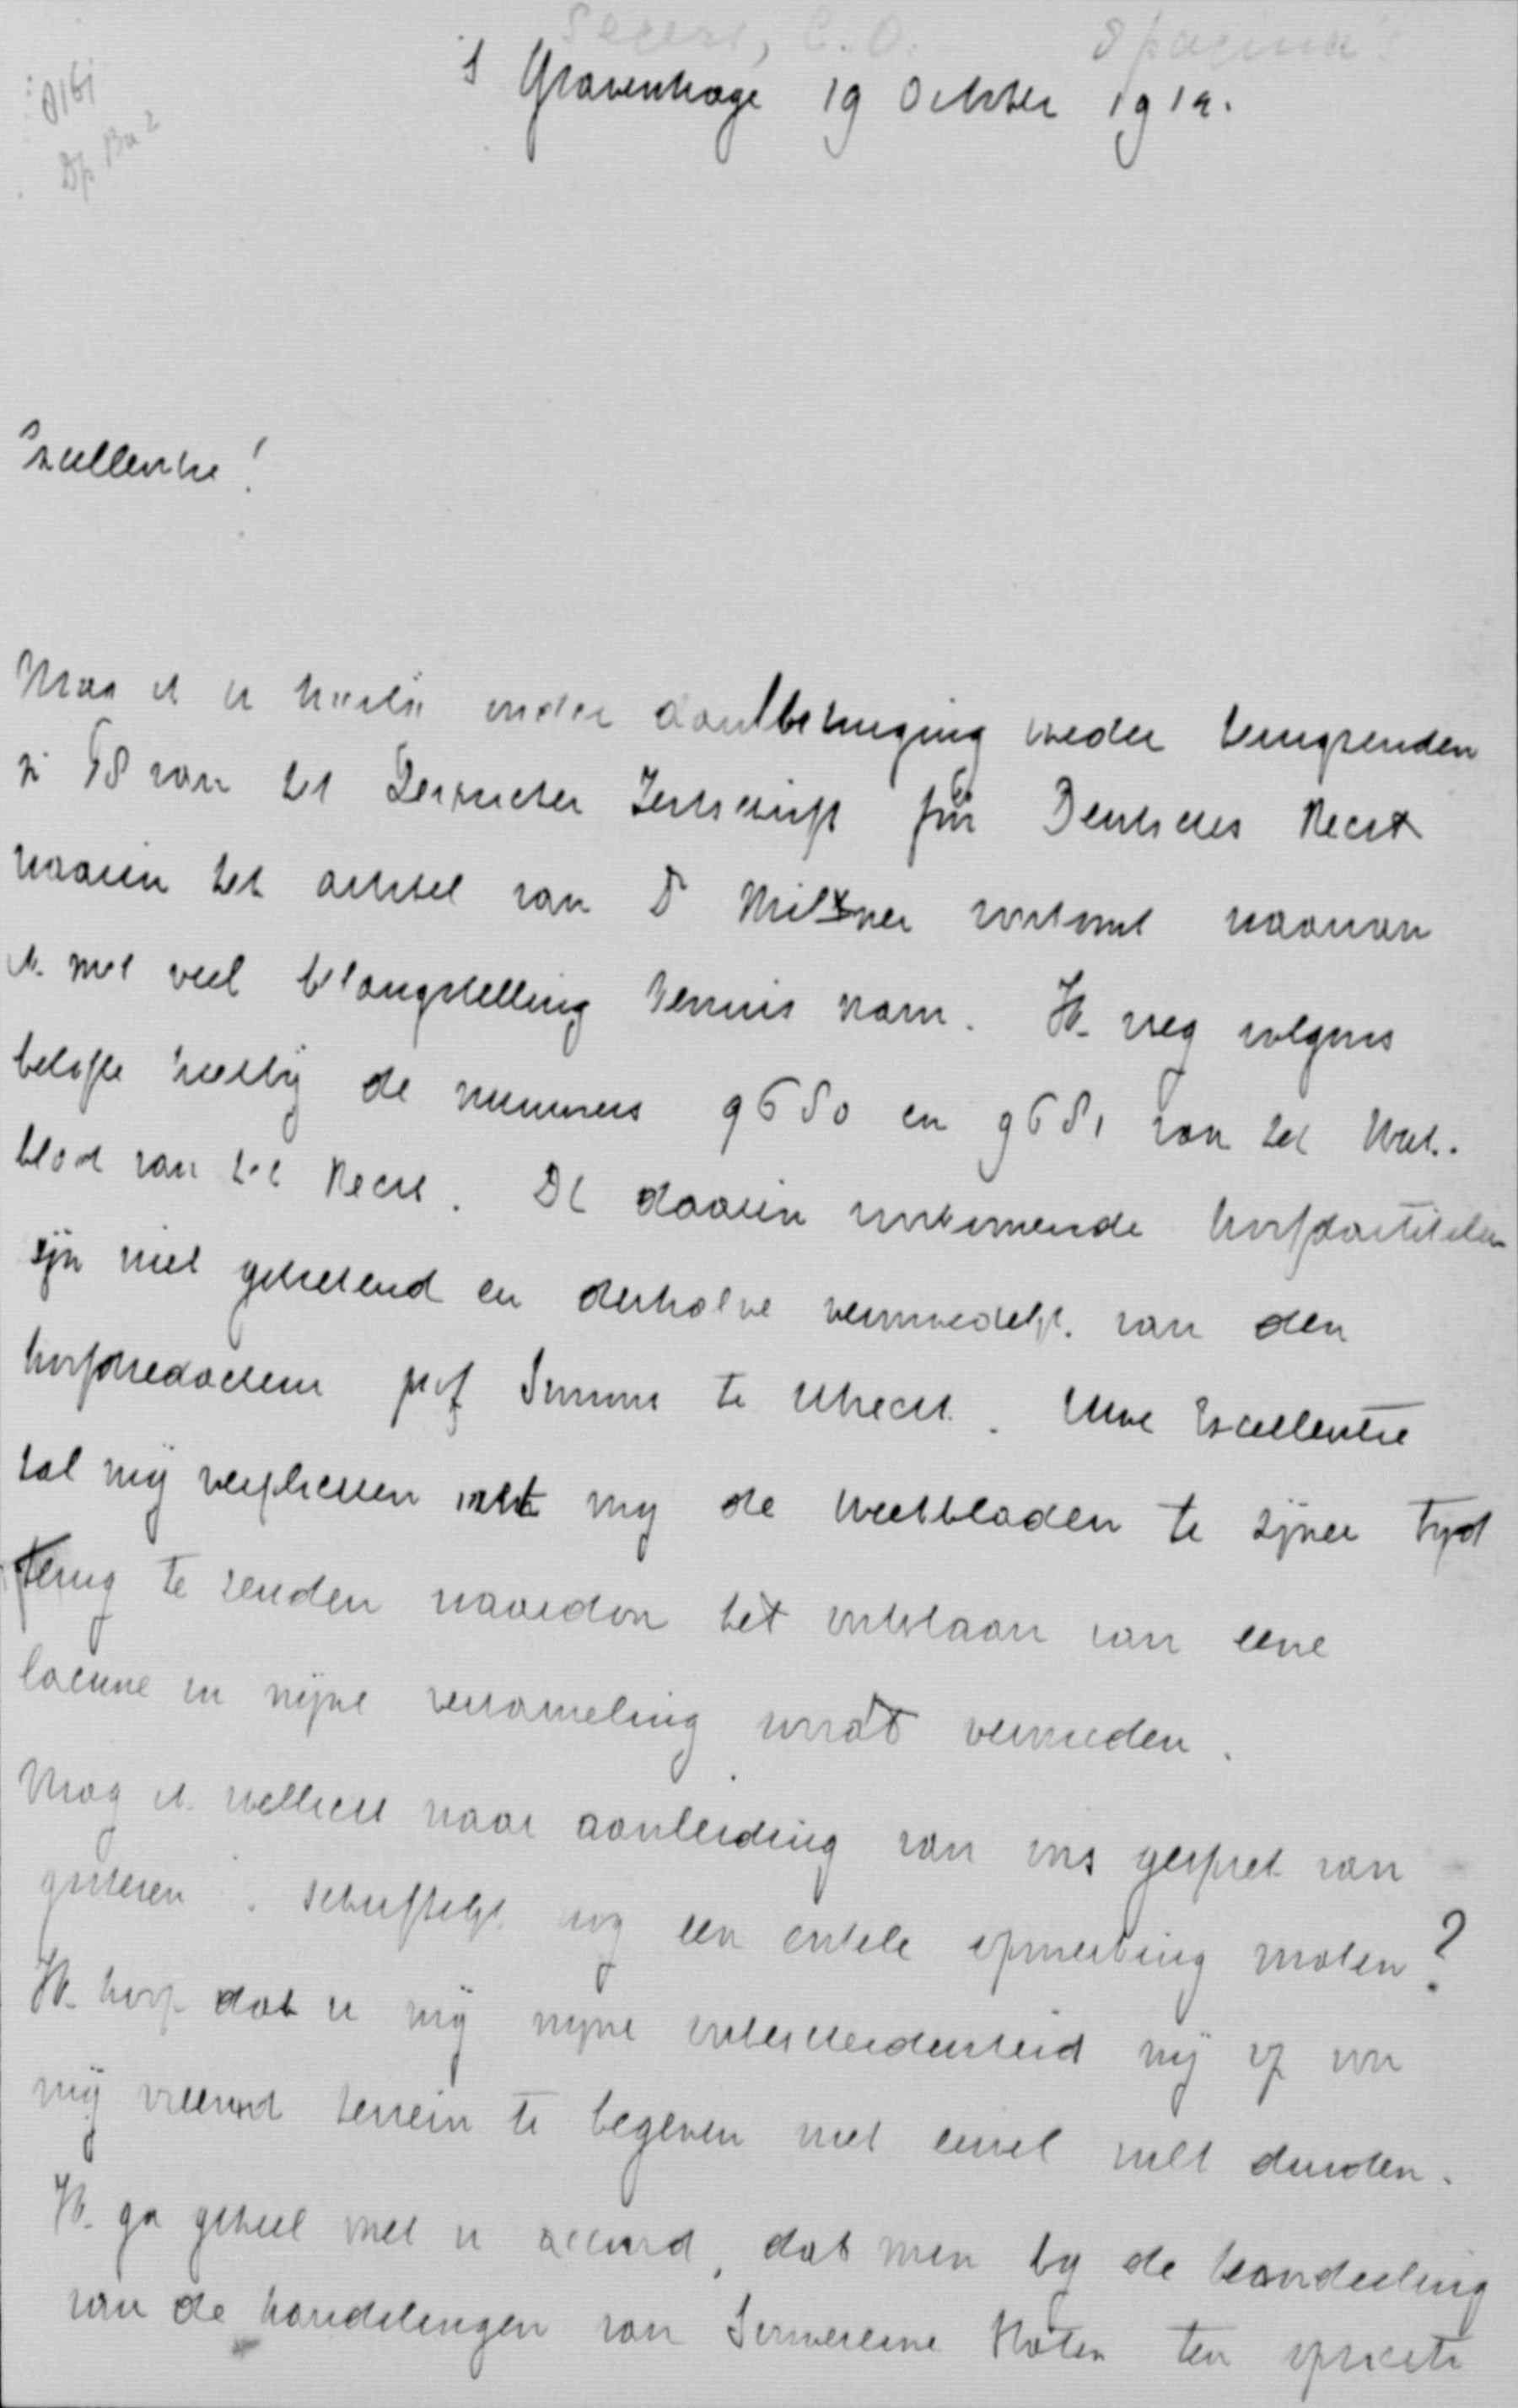 Segers, C. O.
's Gravenhage 19 October 191
Excellentie!
Mag ik u hierbij onder dankbetuiging weder terugzenden
van het Zeitschrift für Deutsches Recht
waarin het artikel van Dr voorkomt waarvan
ik met veel belangstelling kennis nam. Ik voeg volgens
belofte hierbij de nummers 9680 en 9681 van het Week-
blad van het Recht. De daarin voorkomende hoofdartikelen
zijn niet geteekend en derhalve vermoedelijk van den
hoofdredacteur prof Simons te Utrecht. Uwe Excellentie
zal mij verplichten met mij de weekbladen te zijner tijd
terug te zenden waardoor het ontstaan van eene
lacune in mijne verzameling wordt vermeden.
Mag ik wellicht naar aanleiding van ons gesprek van
gisteren schriftelijk nog een enkele opmerking maken?
Ik hoop dat u mij mijne onbescheidenheid mij op voor
mij vreemd terrein te begeven niet euvel zult duiden.
Ik ga geheel met u accoord, dat men bij de beoordeeling
van de handelingen van Souvereine Staten ten opzichte